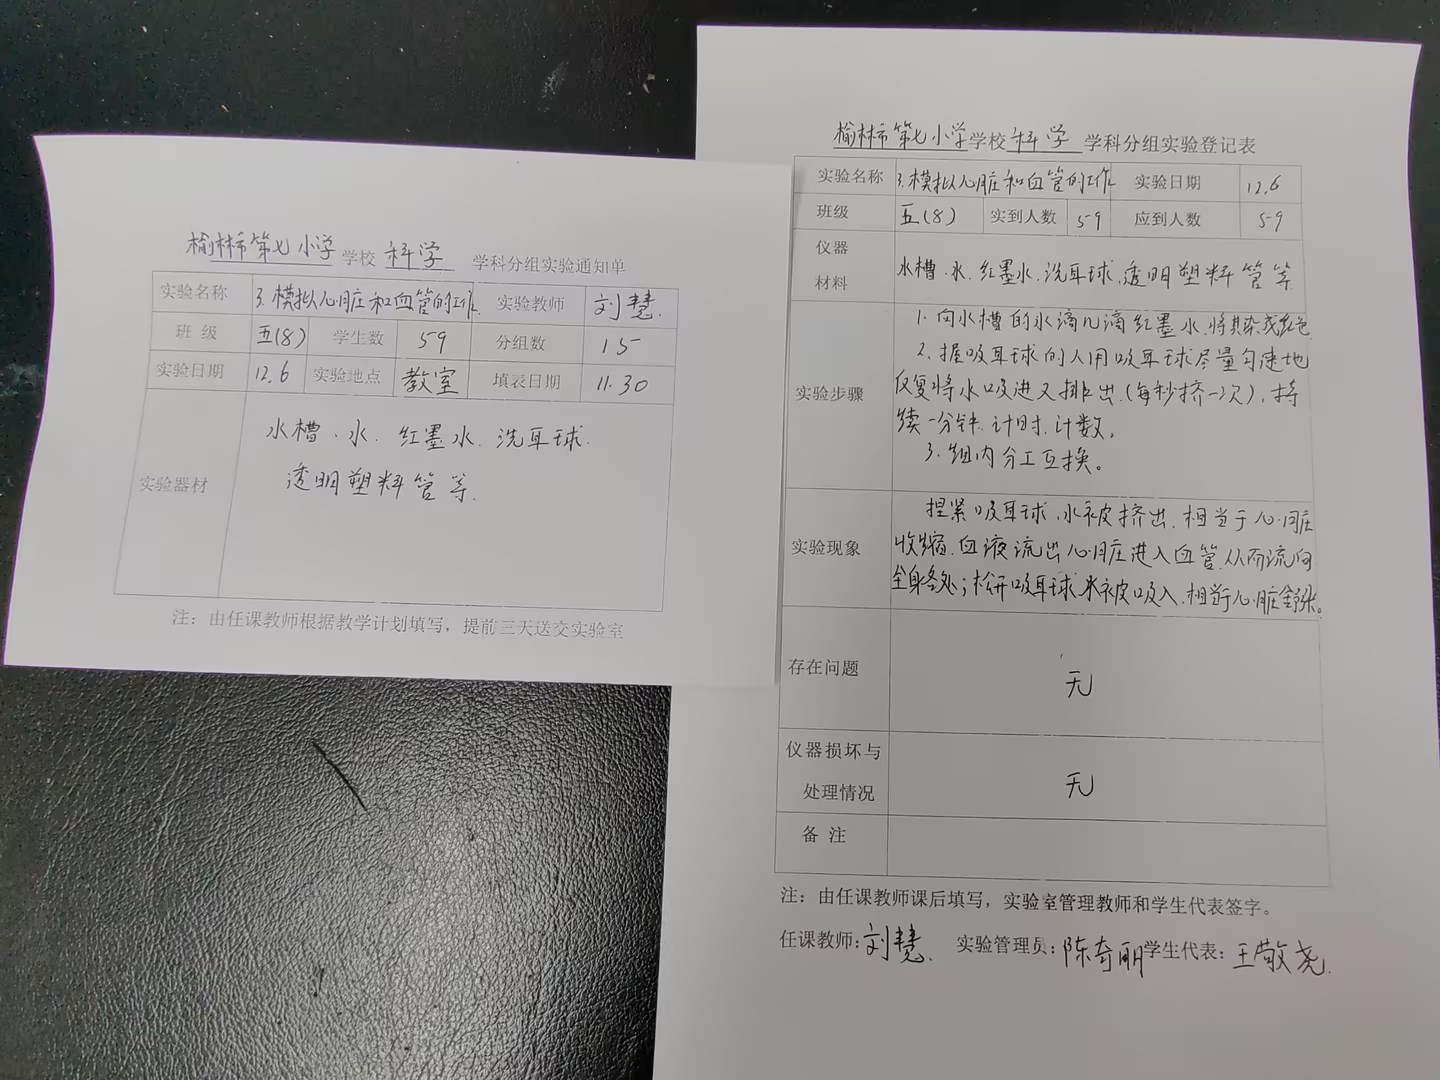 榆林市第七小学学校 科学 学科分组实验通知单
实验名称 3.模拟心脏和血管的工作 实验教师 刘慧.
班 级 五(8) 学生数 59 分组数 15
实验日期 12.6 实验地点 教室 填表日期 11.30
实验器材
水槽、水、红墨水、洗耳球、
透明塑料管等.
注：由任课教师根据教学计划填写，提前三天送交实验室
榆林市第七小学学校 科学 学科分组实验登记表
实验名称 3.模拟心脏和血管的工作 实验日期 12.6
班级 五(8) 实到人数 59 应到人数 59
仪器
材料
水槽、水、红墨水、洗耳球、透明塑料管等
实验步骤
1.向水槽的水滴几滴红墨水,将其染成红色
2.握吸耳球的人用吸耳球尽量匀速地
反复将水吸进又排出.(每秒挤一次),持
续一分钟.计时.计数。
3.组内分工互换。
实验现象
捏紧吸耳球,水被挤出.相当于心脏
收缩.血液流出心脏进入血管.从而流向
全身各处;松开吸耳球水被吸入.相当于心脏舒张。
存在问题
无
仪器损坏与
处理情况
无
备 注
注：由任课教师课后填写，实验室管理教师和学生代表签字。
任课教师：刘慧. 实验管理员：陈奇丽 学生代表：王敬尧.